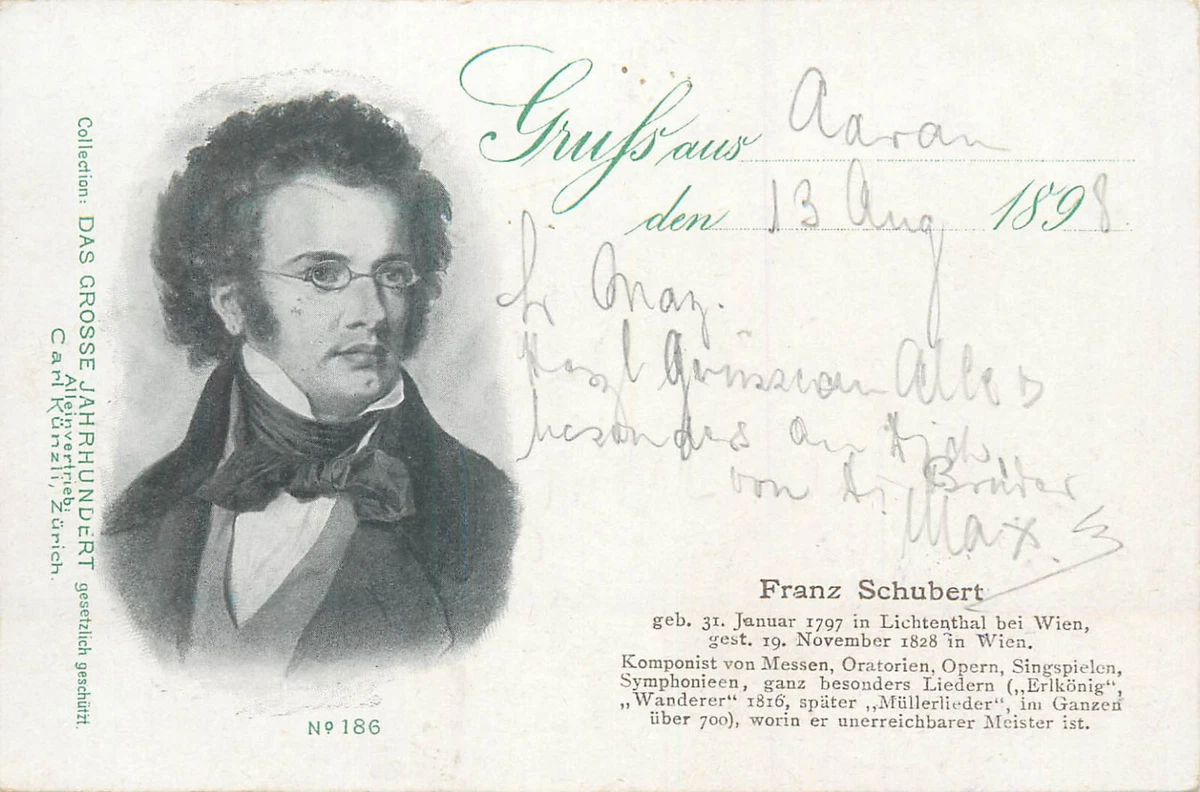 Collection: DAS GROSSE JAHRHUNDERT gesetzlich geschützt.
Alleinvertrieb:
Carl Künzli, Zürich.
Nº 186
Gruss aus Aarau
den 13 Aug 1898
Grüsse an Alle
besonders an Dich
von Bruder
Max.
Franz Schubert
geb. 31. Januar 1797 in Lichtenthal bei Wien,
gest. 19. November 1828 in Wien.
Komponist von Messen, Oratorien, Opern, Singspielen,
Symphonieen, ganz besonders Liedern („Erlkönig“,
„Wanderer“ 1816, später „Müllerlieder“, im Ganzen
über 700), worin er unerreichbarer Meister ist.